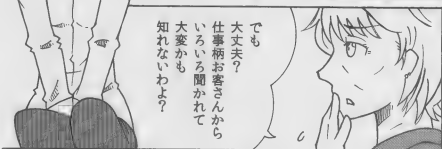 でも
大丈夫？
仕事柄お客さんから
いろいろ聞かれて
大変かも
知れないわよ？